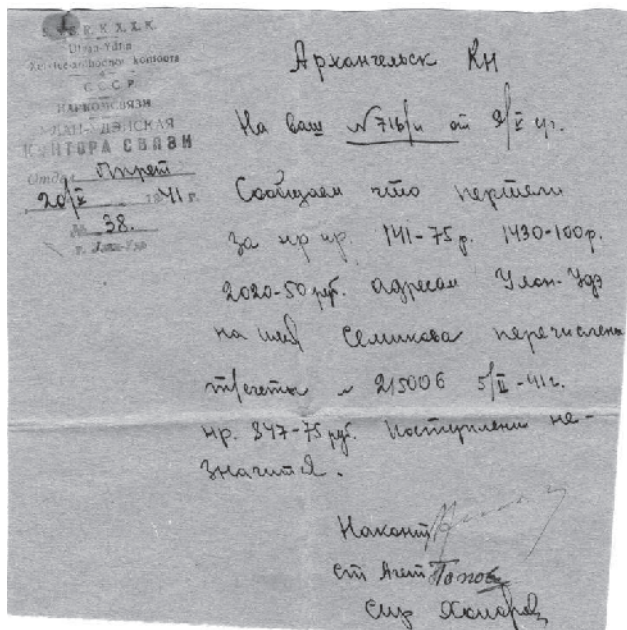 S. S. S. R. K. X. X. K.
Ulaan-Ydьn
kontoora
С С С Р
НАРКОМСВЯЗИ
УЛАН-УДЭНСКАЯ
КОНТОРА СВЯЗИ
Отдел
20/X 1941 г.
№ 38.
г. Улан-Удэ
Архангельск Кн
На ваш №716/и от 9/X 41г.
Сообщаем что
за нр нр. 141-75р. 1430-100р.
2020-50 руб. адресам Улан-Удэ
на имя Семикова перечислены
215006 5/II-41г.
нр. 847-75 руб. Поступлени не-
значится.
Наконт
Ст Агент Попов